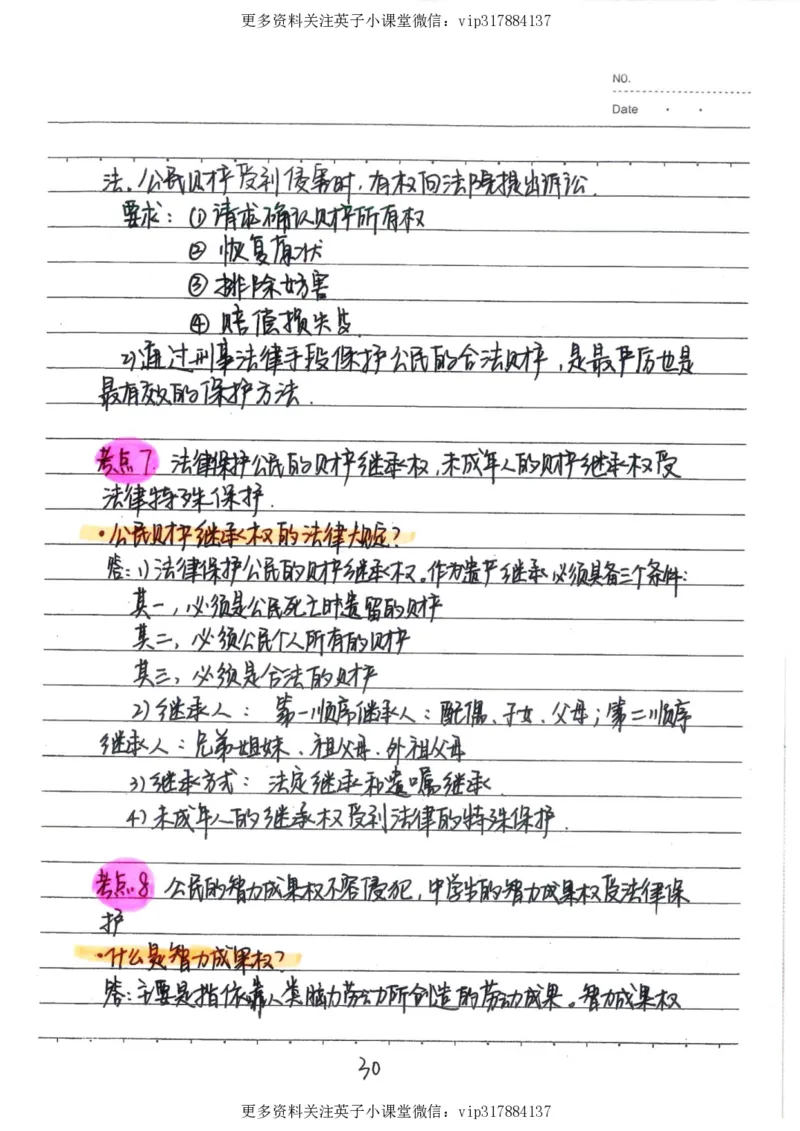 更多资料关注英子小课堂微信：vip317884137
NO.
Date
法。公民财产受到侵害时，有权向法院提出诉讼.
要求：①请求确认财产所有权
②恢复原状
③排除妨害
④赔偿损失
2)通过刑事法律手段保护公民的合法财产，是最严厉也是
最有效的保护方法.
考点7. 法律保护公民的财产继承权,未成年人的财产继承权受
法律特殊保护.
·公民财产继承权的法律规定?
答:1)法律保护公民的财产继承权。作为遗产继承必须具备三个条件:
其一，必须是公民死亡时遗留的财产
其二，必须公民个人所有的财产
其三，必须是合法的财产
2)继承人：第一顺序继承人：配偶、子女、父母；第二顺序
继承人：兄弟姐妹、祖父母、外祖父母
3)继承方式：法定继承和遗嘱继承.
4)未成年人的继承权受到法律的特殊保护.
考点.8 公民的智力成果权不容侵犯,中学生的智力成果权受法律保
护
·什么是智力成果权?
答:主要是指依靠人类脑力劳动所创造的劳动成果。智力成果权
30
更多资料关注英子小课堂微信：vip317884137